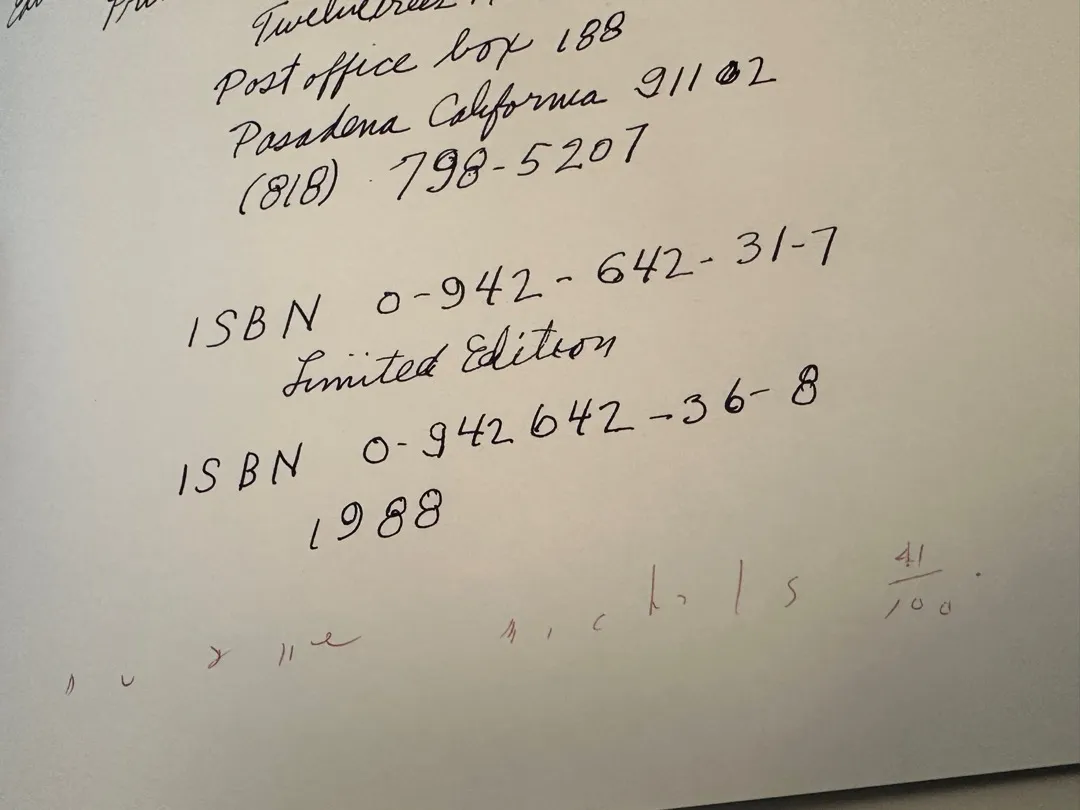 Twelvetrees
Post office box 188
Pasadena California 91102
(818) 798-5207
ISBN 0-942-642-31-7
Limited Edition
ISBN 0-942642-36-8
1988
41/100